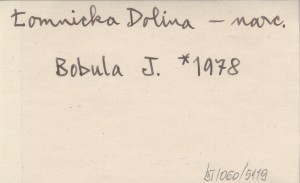 Łomnicka Dolina – narc.
Bobula J. *1978
ST/060/5119